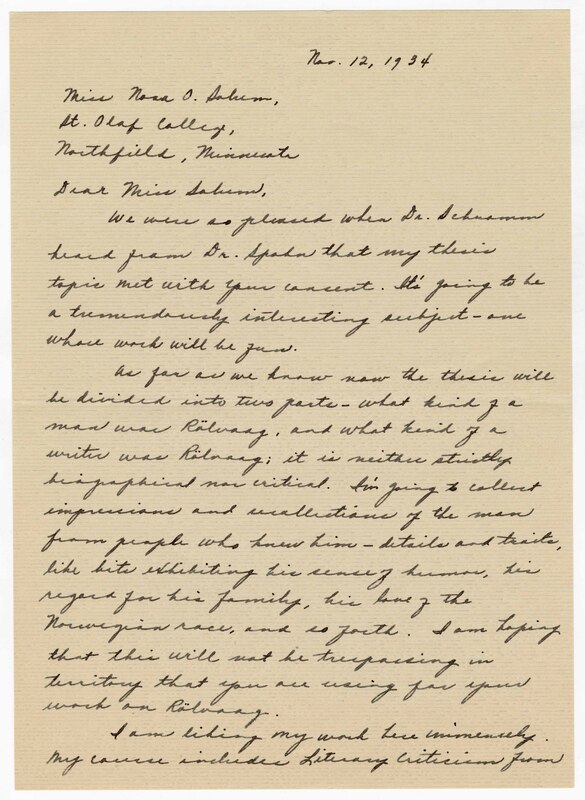 Nov. 12, 1934
Miss Nora O. Solum,
St. Olaf College,
Northfield, Minnesota
Dear Miss Solum,
We were so pleased when Dr. Schramm
heard from Dr. Spohn that my thesis
topic met with your consent. It's going to be
a tremendously interesting subject - one
whose work will be fun.
As far as we know now the thesis will
be divided into two parts - what kind of a
man was Rölvaag, and what kind of a
writer was Rölvaag; it is neither strictly
biographical nor critical. I'm going to collect
impressions and recollections of the man
from people who knew him - details and traits,
like bits exhibiting his sense of humor, his
regard for his family, his love of the
Norwegian race, and so forth. I am hoping
that this will not be trespassing in
territory that you are using for your
work on Rölvaag.
I am liking my work here immensely.
My course includes Literary Criticism from